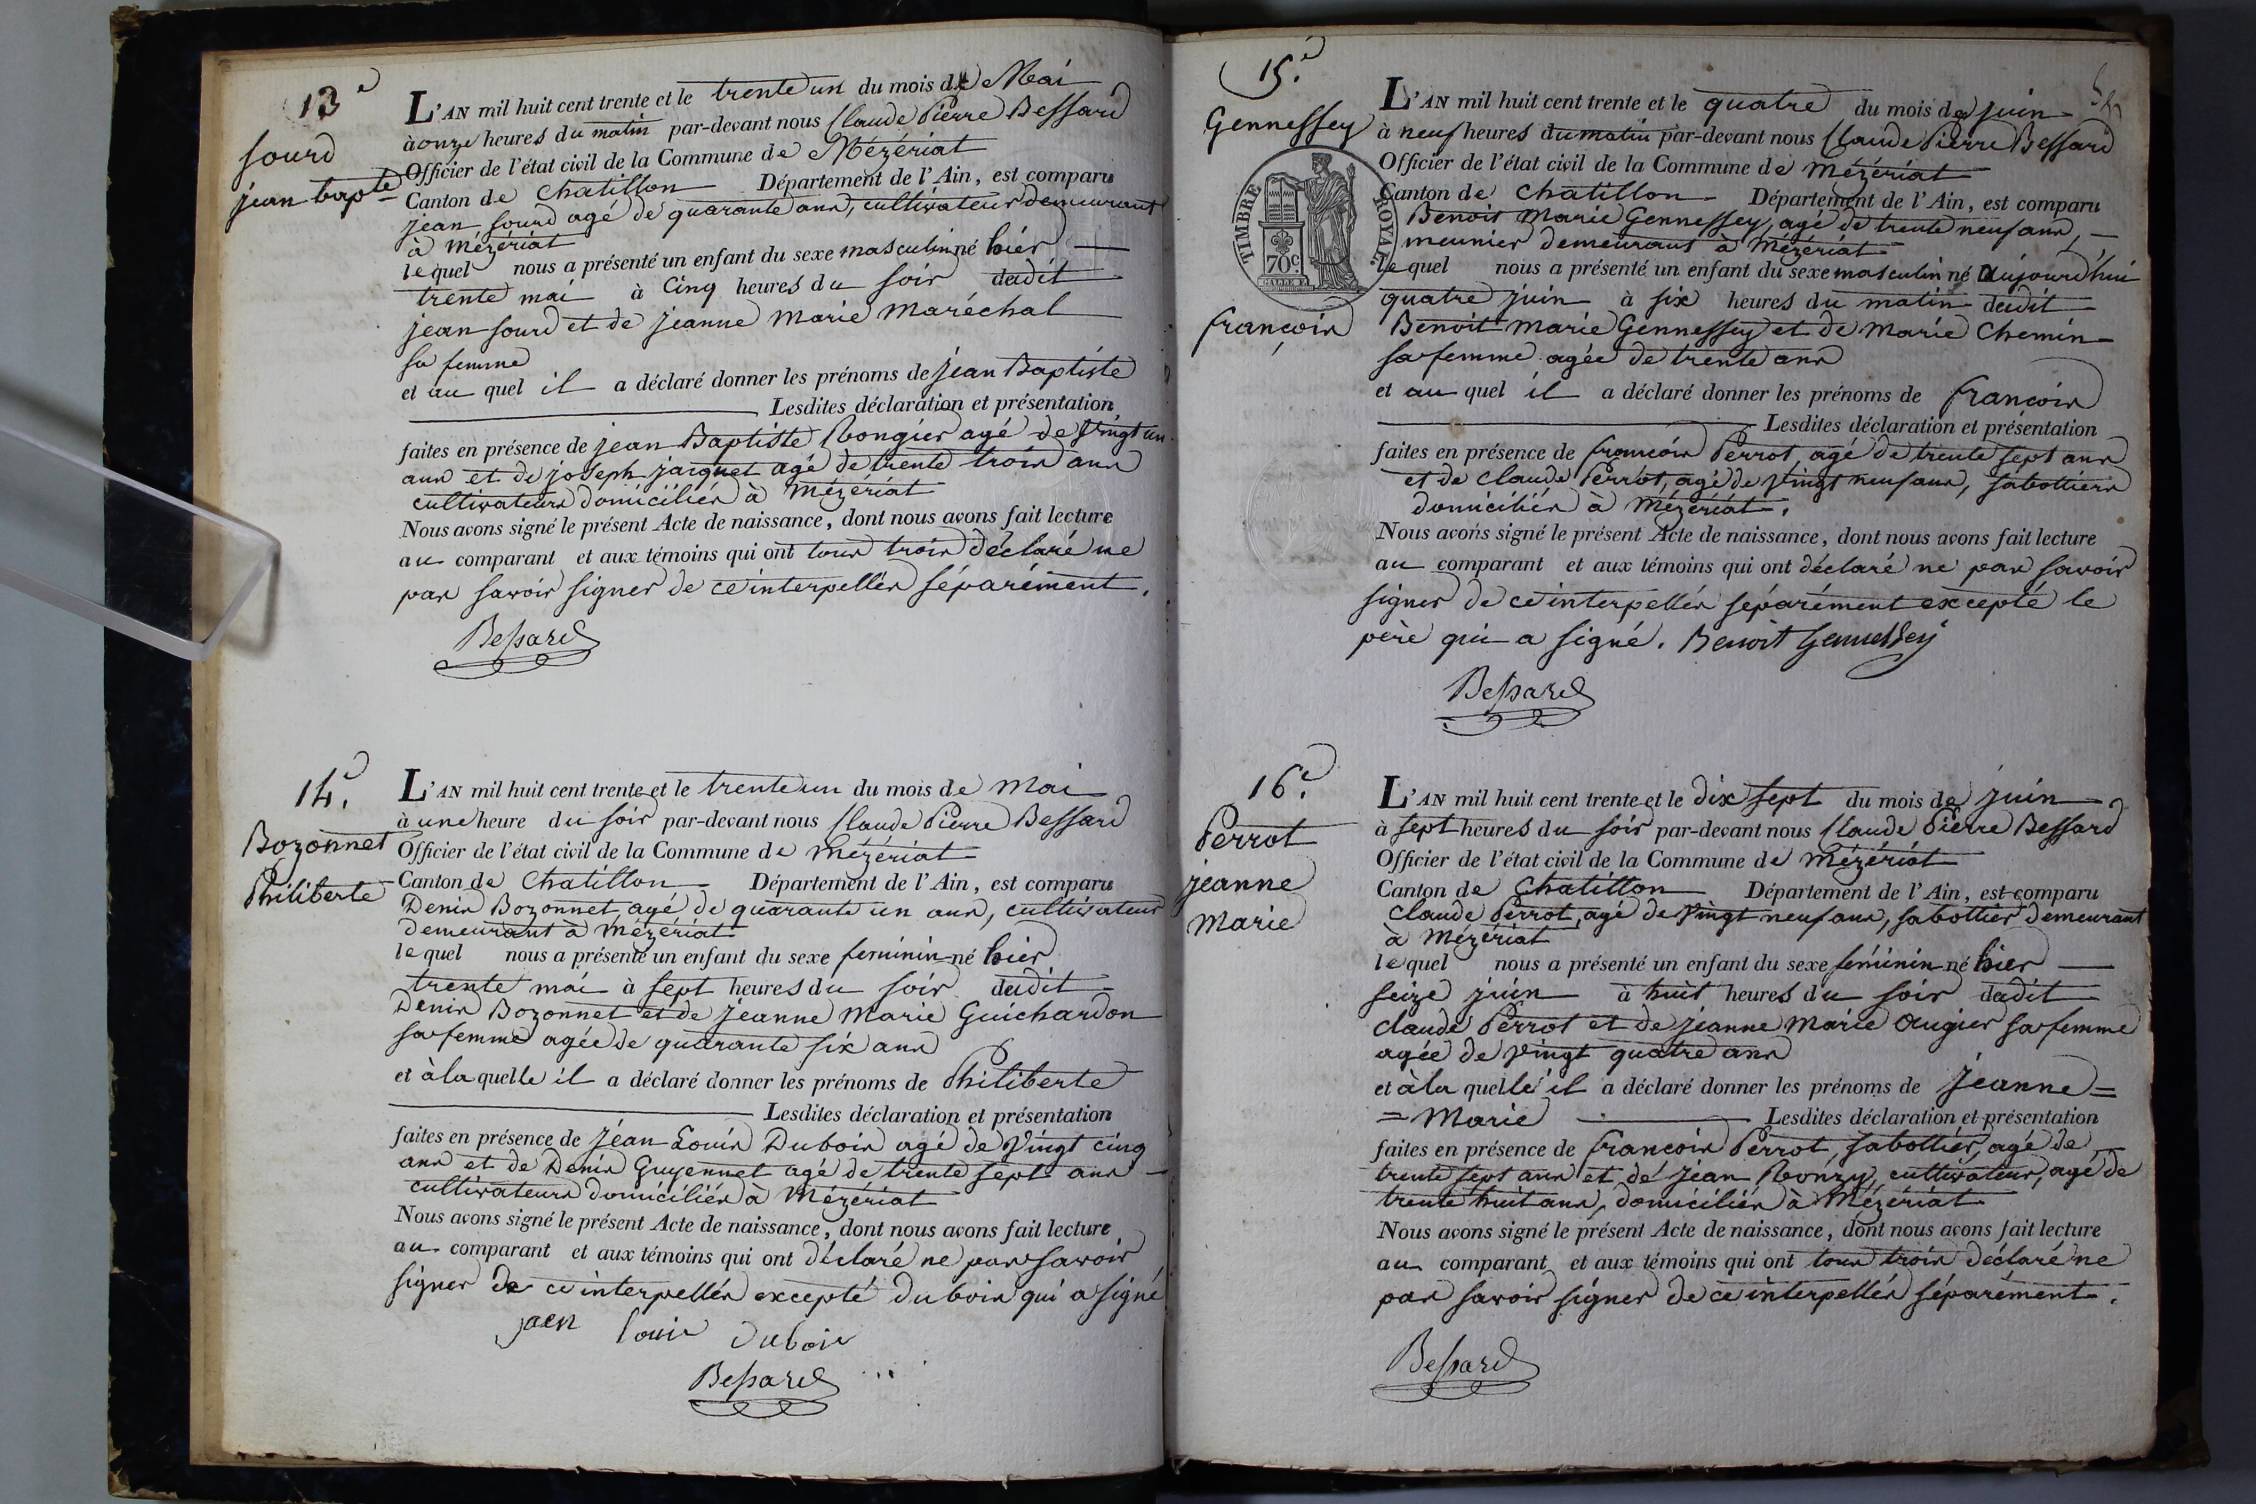 13e
Sourd
jean bapte
L'AN mil huit cent trente et le trente un du mois de Mai
à onze heures du matin par-devant nous Claude Pierre Bessard
Officier de l'état civil de la Commune de Mézériat
Canton de Chatillon Département de l'Ain, est comparu
jean Sourd agé de quarante ans, cultivateur demeurant
à Mézériat
lequel nous a présenté un enfant du sexe masculin né hier
trente mai à cinq heures du soir dudit
jean Sourd et de jeanne Marie Maréchal
sa femme
et au quel il a déclaré donner les prénoms de jean Baptiste
Lesdites déclaration et présentation
faites en présence de jean Baptiste Rongier agé de vingt un
ans et de joseph jacquet agé de trente trois ans
cultivateurs domiciliés à Mézériat
Nous avons signé le présent Acte de naissance, dont nous avons fait lecture
au comparant et aux témoins qui ont tous trois déclaré ne
pas savoir signer de ce interpellés séparément.
Bessard
14e.
Bozonnet
Philiberte
L'AN mil huit cent trente et le trente un du mois de Mai
à une heure du soir par-devant nous Claude Pierre Bessard
Officier de l'état civil de la Commune de Mézériat
Canton de Chatillon Département de l'Ain, est comparu
Denis Bozonnet, agé de quarante un ans, cultivateur
demeurant à Mézériat
lequel nous a présenté un enfant du sexe feminin né hier
trente mai à sept heures du soir dudit
Denis Bozonnet et de jeanne Marie Guichardon
sa femme agée de quarante six ans
et à la quelle il a déclaré donner les prénoms de Philiberte
Lesdites déclaration et présentation
faites en présence de jean Louis Dubois agé de vingt cinq
ans et de Denis Guyennet agé de trente sept ans
cultivateurs domiciliés à Mézériat
Nous avons signé le présent Acte de naissance, dont nous avons fait lecture
au comparant et aux témoins qui ont déclaré ne pas savoir
signer de ce interpellés excepté Dubois qui a signé
jaen Louis Dubois
Bessard
15e.
Gennessey
TIMBRE ROYAL.
70c.
françois
L'AN mil huit cent trente et le quatre du mois de juin
à neuf heures du matin par-devant nous Claude Pierre Bessard
Officier de l'état civil de la Commune de Mézériat
Canton de Chatillon Département de l'Ain, est comparu
Benoit Marie Gennessey, agé de trente neuf ans,
meunier demeurant à Mézériat
lequel nous a présenté un enfant du sexe masculin né aujourd'hui
quatre juin à six heures du matin dudit
Benoit Marie Gennessey et de Marie Chemin
sa femme agée de trente ans
et au quel il a déclaré donner les prénoms de françois
Lesdites déclaration et présentation
faites en présence de françois Perrot, agé de trente sept ans
et de Claude Perrot, agé de vingt neuf ans, sabottiers
domiciliés à Mézériat.
Nous avons signé le présent Acte de naissance, dont nous avons fait lecture
au comparant et aux témoins qui ont déclaré ne pas savoir
signer de ce interpellés séparément excepté le
père qui a signé. Benoit Gennessey
Bessard
16e.
Perrot
jeanne
Marie
L'AN mil huit cent trente et le dix sept du mois de juin
à sept heures du soir par-devant nous Claude Pierre Bessard
Officier de l'état civil de la Commune de Mézériat
Canton de Chatillon Département de l'Ain, est comparu
Claude Perrot, agé de vingt neuf ans, sabottier demeurant
à Mézériat
lequel nous a présenté un enfant du sexe féminin né hier
seize juin à huit heures du soir dudit
Claude Perrot et de jeanne Marie Augier sa femme
agée de vingt quatre ans
et à la quelle il a déclaré donner les prénoms de jeanne=
=Marie Lesdites déclaration et présentation
faites en présence de françois Perrot, sabottier, agé de
trente sept ans et de jean Ronzy, cultivateur, agé de
trente huit ans, domiciliés à Mézériat
Nous avons signé le présent Acte de naissance, dont nous avons fait lecture
au comparant et aux témoins qui ont tous trois déclaré ne
pas savoir signer de ce interpellés séparément.
Bessard